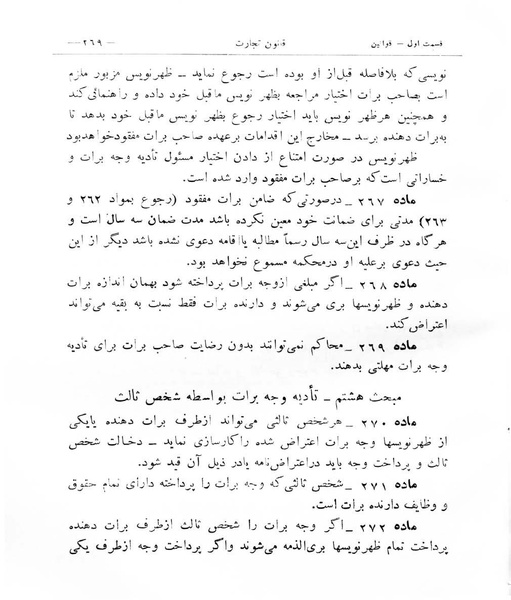 قسمت اول – قوانین
قانون تجارت
– ۲۶۹ –
نویسی که بلافاصله قبل از او بوده است رجوع نماید – ظهرنویس مزبور ملزم
است بصاحب برات اختیار مراجعه بظهر نویس ماقبل خود داده و راهنمائی کند
و همچنین هرظهر نویس باید اختیار رجوع بظهر نویس ماقبل خود بدهد تا
به برات دهنده برسد – مخارج این اقدامات برعهده صاحب برات مفقود خواهد بود
ظهرنویس در صورت امتناع از دادن اختیار مسئول تأدیه وجه برات و
خساراتی است که بر صاحب برات مفقود وارد شده است.
ماده ۲۶۷ – درصورتی که ضامن برات مفقود (رجوع بمواد ۲۶۲ و
۲۶۳) مدتی برای ضمانت خود معین نکرده باشد مدت ضمان سه سال است و
هرگاه در ظرف این سه سال رسماً مطالبه یا اقامه دعوی نشده باشد دیگر از این
حیث دعوی برعلیه او درمحکمه مسموع نخواهد بود.
ماده ۲۶۸ – اگر مبلغی ازوجه برات پرداخته شود بهمان اندازه برات
دهنده و ظهرنویسها بری می‌شوند و دارنده برات فقط نسبت به بقیه می‌تواند
اعتراض کند.
ماده ۲۶۹ – محاکم نمی‌توانند بدون رضایت صاحب برات برای تأدیه
وجه برات مهلتی بدهند.
مبحث هشتم – تأدیه وجه برات بواسطه شخص ثالث
ماده ۲۷۰ – هرشخص ثالثی می‌تواند ازطرف برات دهنده یا یکی
از ظهرنویسها وجه برات اعتراض شده را کارسازی نماید – دخالت شخص
ثالث و پرداخت وجه باید دراعتراض‌نامه یا در ذیل آن قید شود.
ماده ۲۷۱ – شخص ثالثی که وجه برات را پرداخته دارای تمام حقوق
و وظایف دارنده برات است.
ماده ۲۷۲ – اگر وجه برات را شخص ثالث ازطرف برات دهنده
پرداخت تمام ظهرنویسها بری‌الذمه می‌شوند و اگر پرداخت وجه ازطرف یکی